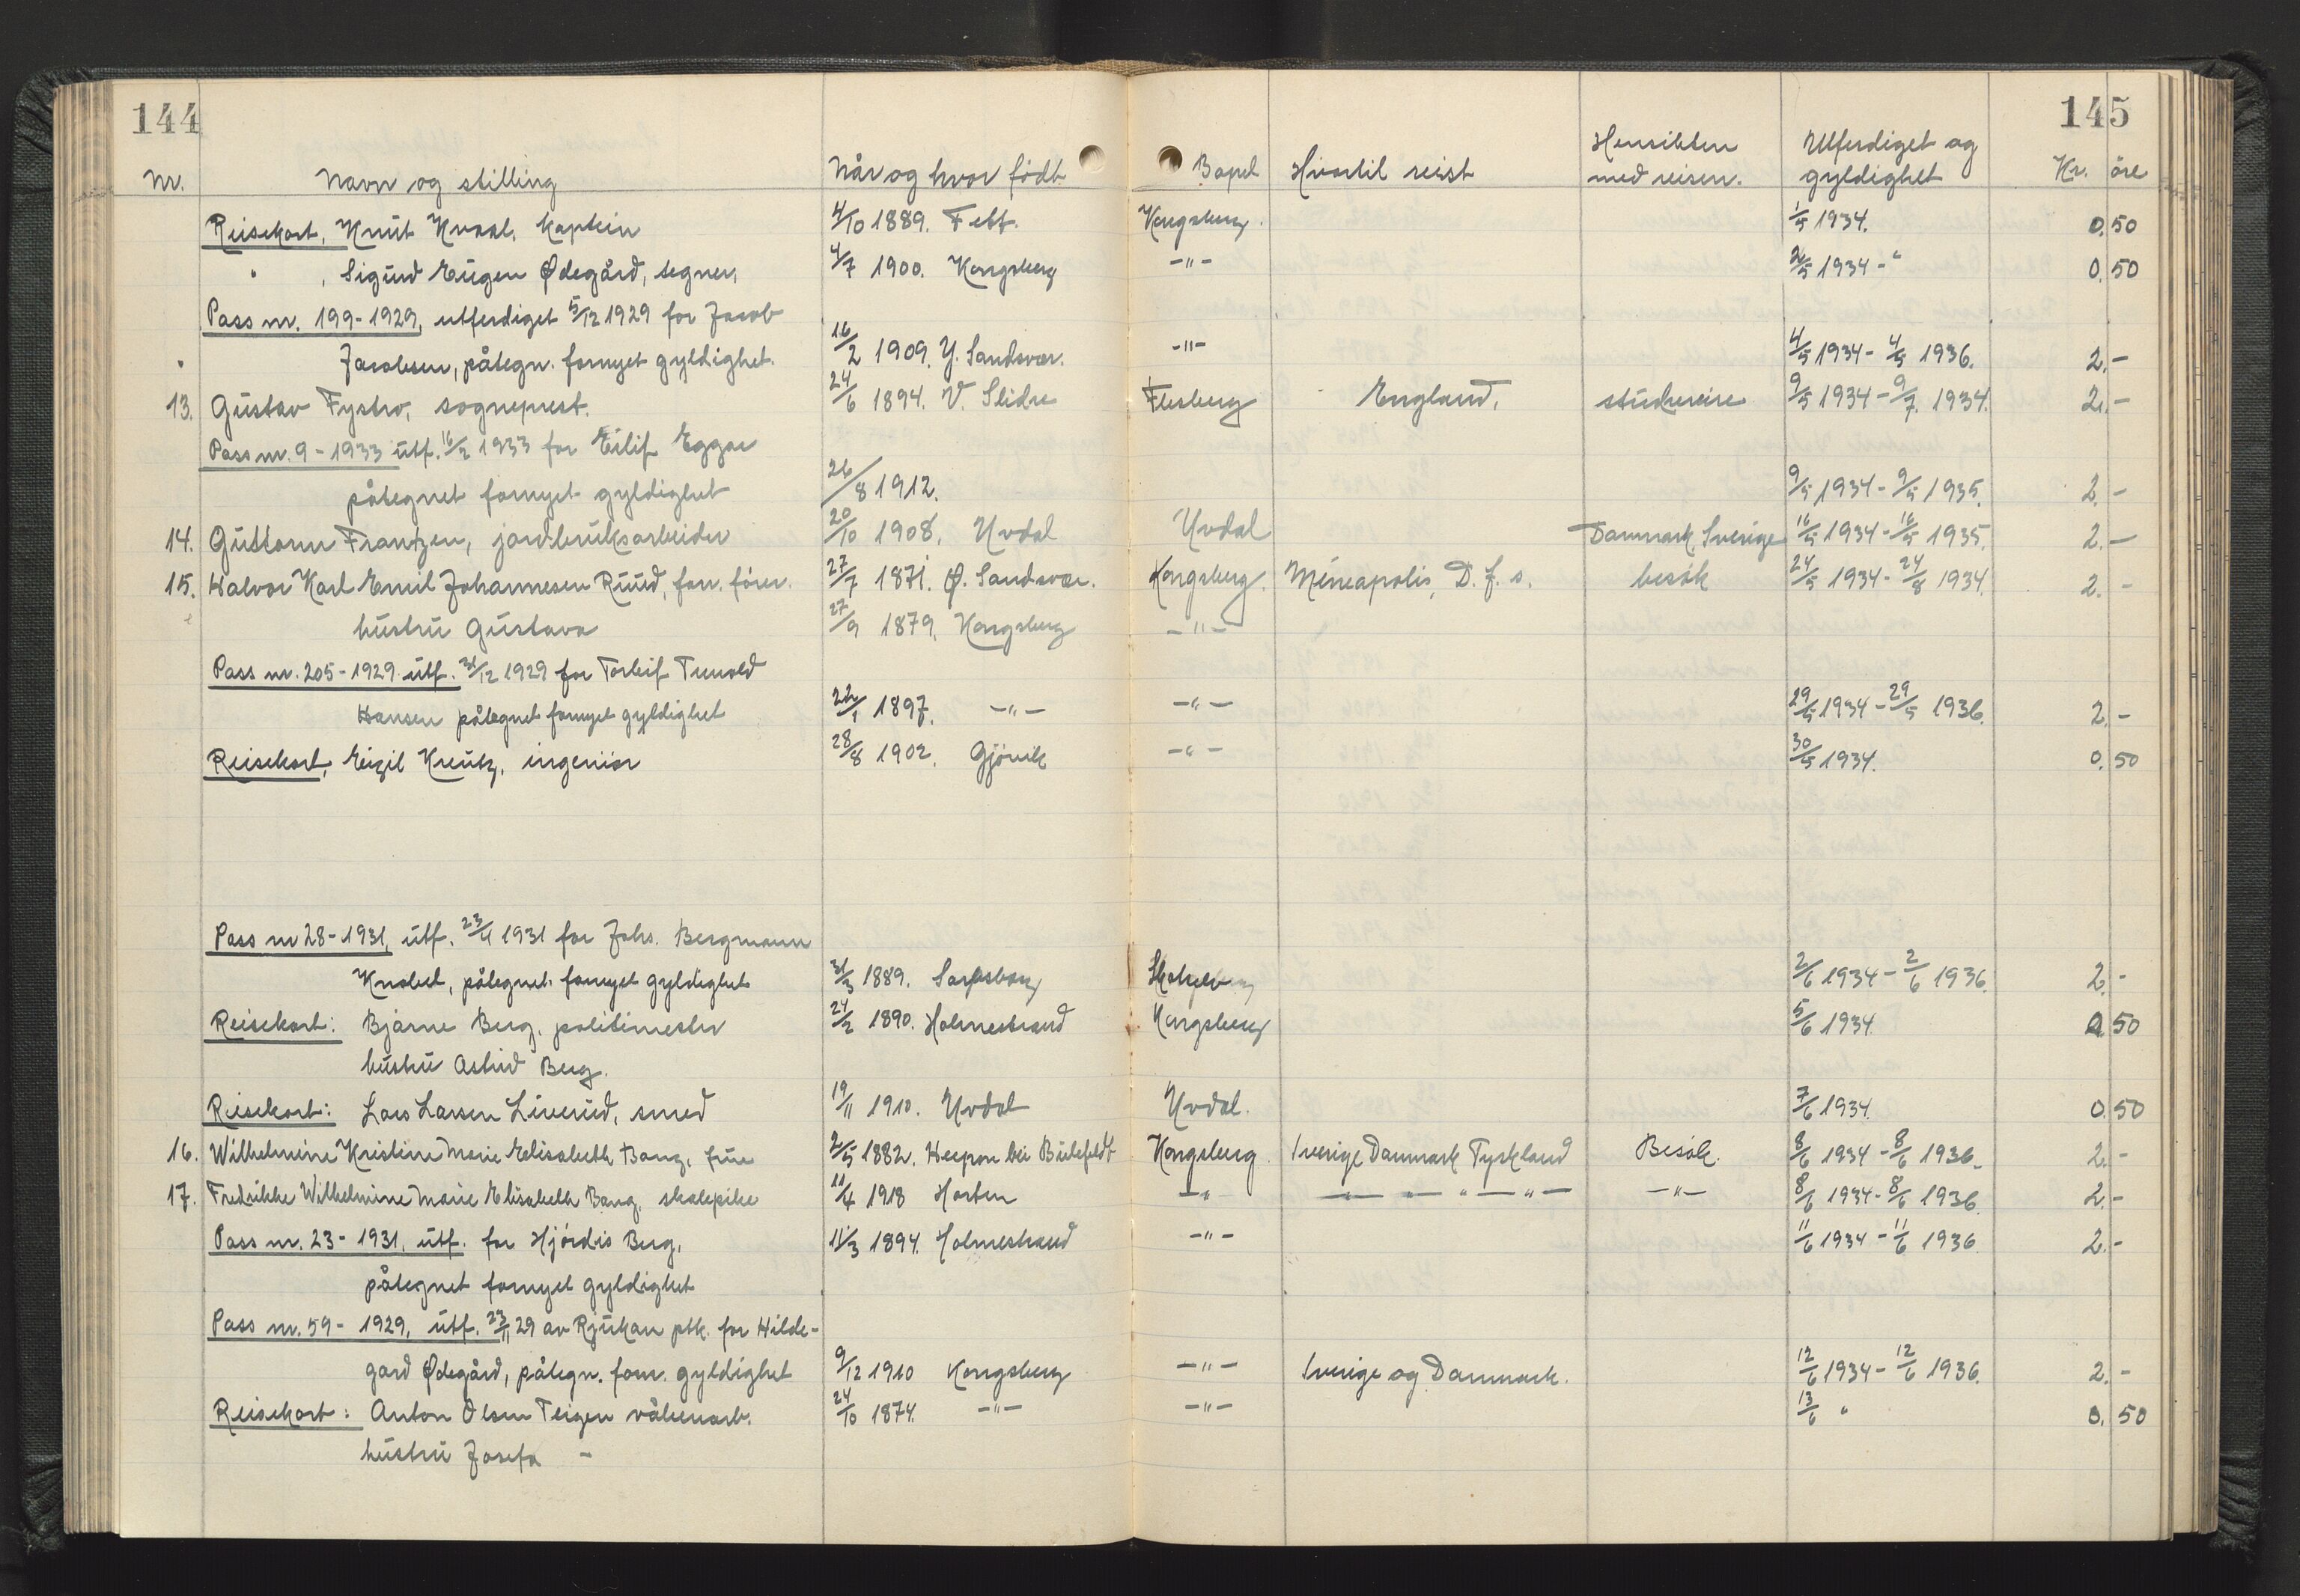 144 145
Nr. Navn og stilling Når og hvor født Bopel Hvortil reist Hensikten med reisen. Utferdiget og gyldighet Kr. öre
Reisekort, Knut Kvaal, Kaptein 4/10 1889. Fett. Kongsberg. 1/5 1934. 0.50
" , Sigurd Eugen Ødegård, tegner, 4/7 1900. Kongsberg -"- 2/5 1934 - " 0.50
Pass nr. 199-1929, utferdiget 5/12 1929 for Jacob
Jacobsen, påtegn. fornyet gyldighet. 16/2 1909. Y. Sandsvær. -"- 4/5 1934 - 4/5 1936. 2.-
13. Gustav Fystro, sogneprest. 24/6 1894. V. Slidre Flesberg England, studiereise 9/5 1934 - 9/7. 1934. 2.-
Pass nr. 9-1933 utf. 16/2 1933 for Eilif Eggar
påtegnet fornyet gyldighet 26/8 1912. 9/5 1934 - 9/5 1935. 2.-
14. Guttorm Frantzen, jordbruksarbeider 20/10 1908. Uvdal Uvdal Danmark, Sverige 16/5 1934 - 16/5 1935. 2.-
15. Halvor Karl Emil Johannesen Ruud, forr. fører. 27/7 1871. Ø. Sandsvær. Kongsberg. Mineapolis, D. f. s. besök 24/5 1934 - 24/8 1934. 2.-
hustru Gustava 27/9 1879. Kongsberg -"-
Pass nr. 205-1929 utf. 31/12 1929 for Torleif Truvald
Hansen påtegnet fornyet gyldighet 22/1 1897. -"- -"- 29/5 1934 - 29/5 1936. 2.-
Reisekort, Eigil Kreutz, ingeniör 28/8 1902. Gjövik -"- 30/5 1934. 0.50
Pass nr 28-1931, utf. 23/4 1931 for Johs. Bergmann
Knobel, påtegnet fornyet gyldighet 31/3 1889. Sarpsborg 2/6 1934 - 2/6 1936. 2.-
Reisekort: Bjarne Berg, politimester 24/2 1890. Holmestrand Kongsberg 5/6 1934. 0.50
hustru Astrid Berg.
Reisekort: Lars Larsen Liverud, smed 19/11 1910. Uvdal Uvdal. 7/6 1934. 0.50
16. Wilhelmine Kristine Marie Elisabeth Bang, frue 2/5 1882. Heepon bei Bielefeldt Kongsberg Sverige Danmark Tyskland Besök. 8/6 1934 - 8/6 1936. 2.-
17. Fredrikke Wilhelmine Marie Elisabeth Bang, skolepike 11/4 1918 Horten -" -"- -"- " -"- -"- 8/6 1934 - 8/6 1936. 2.-
Pass nr. 23-1931, utf. for Hjördis Berg, 11/3 1894. Holmestrand -"- 11/6 1934 - 11/6 1936. 2.-
påtegnet fornyet gyldighet
Pass nr. 59-1929, utf. 23/11 29 av Rjukan ptk. for Hilde-
gard Ødegård, påtegn. forn. gyldighet 9/12 1910 Kongsberg -"- Sverige og Danmark. 12/6 1934 - 12/6 1936. 2.-
Reisekort: Anton Olsen Teigen våbenarb. 24/10 1874. -"- -"- 13/6 " 0.50
hustru Josefa -